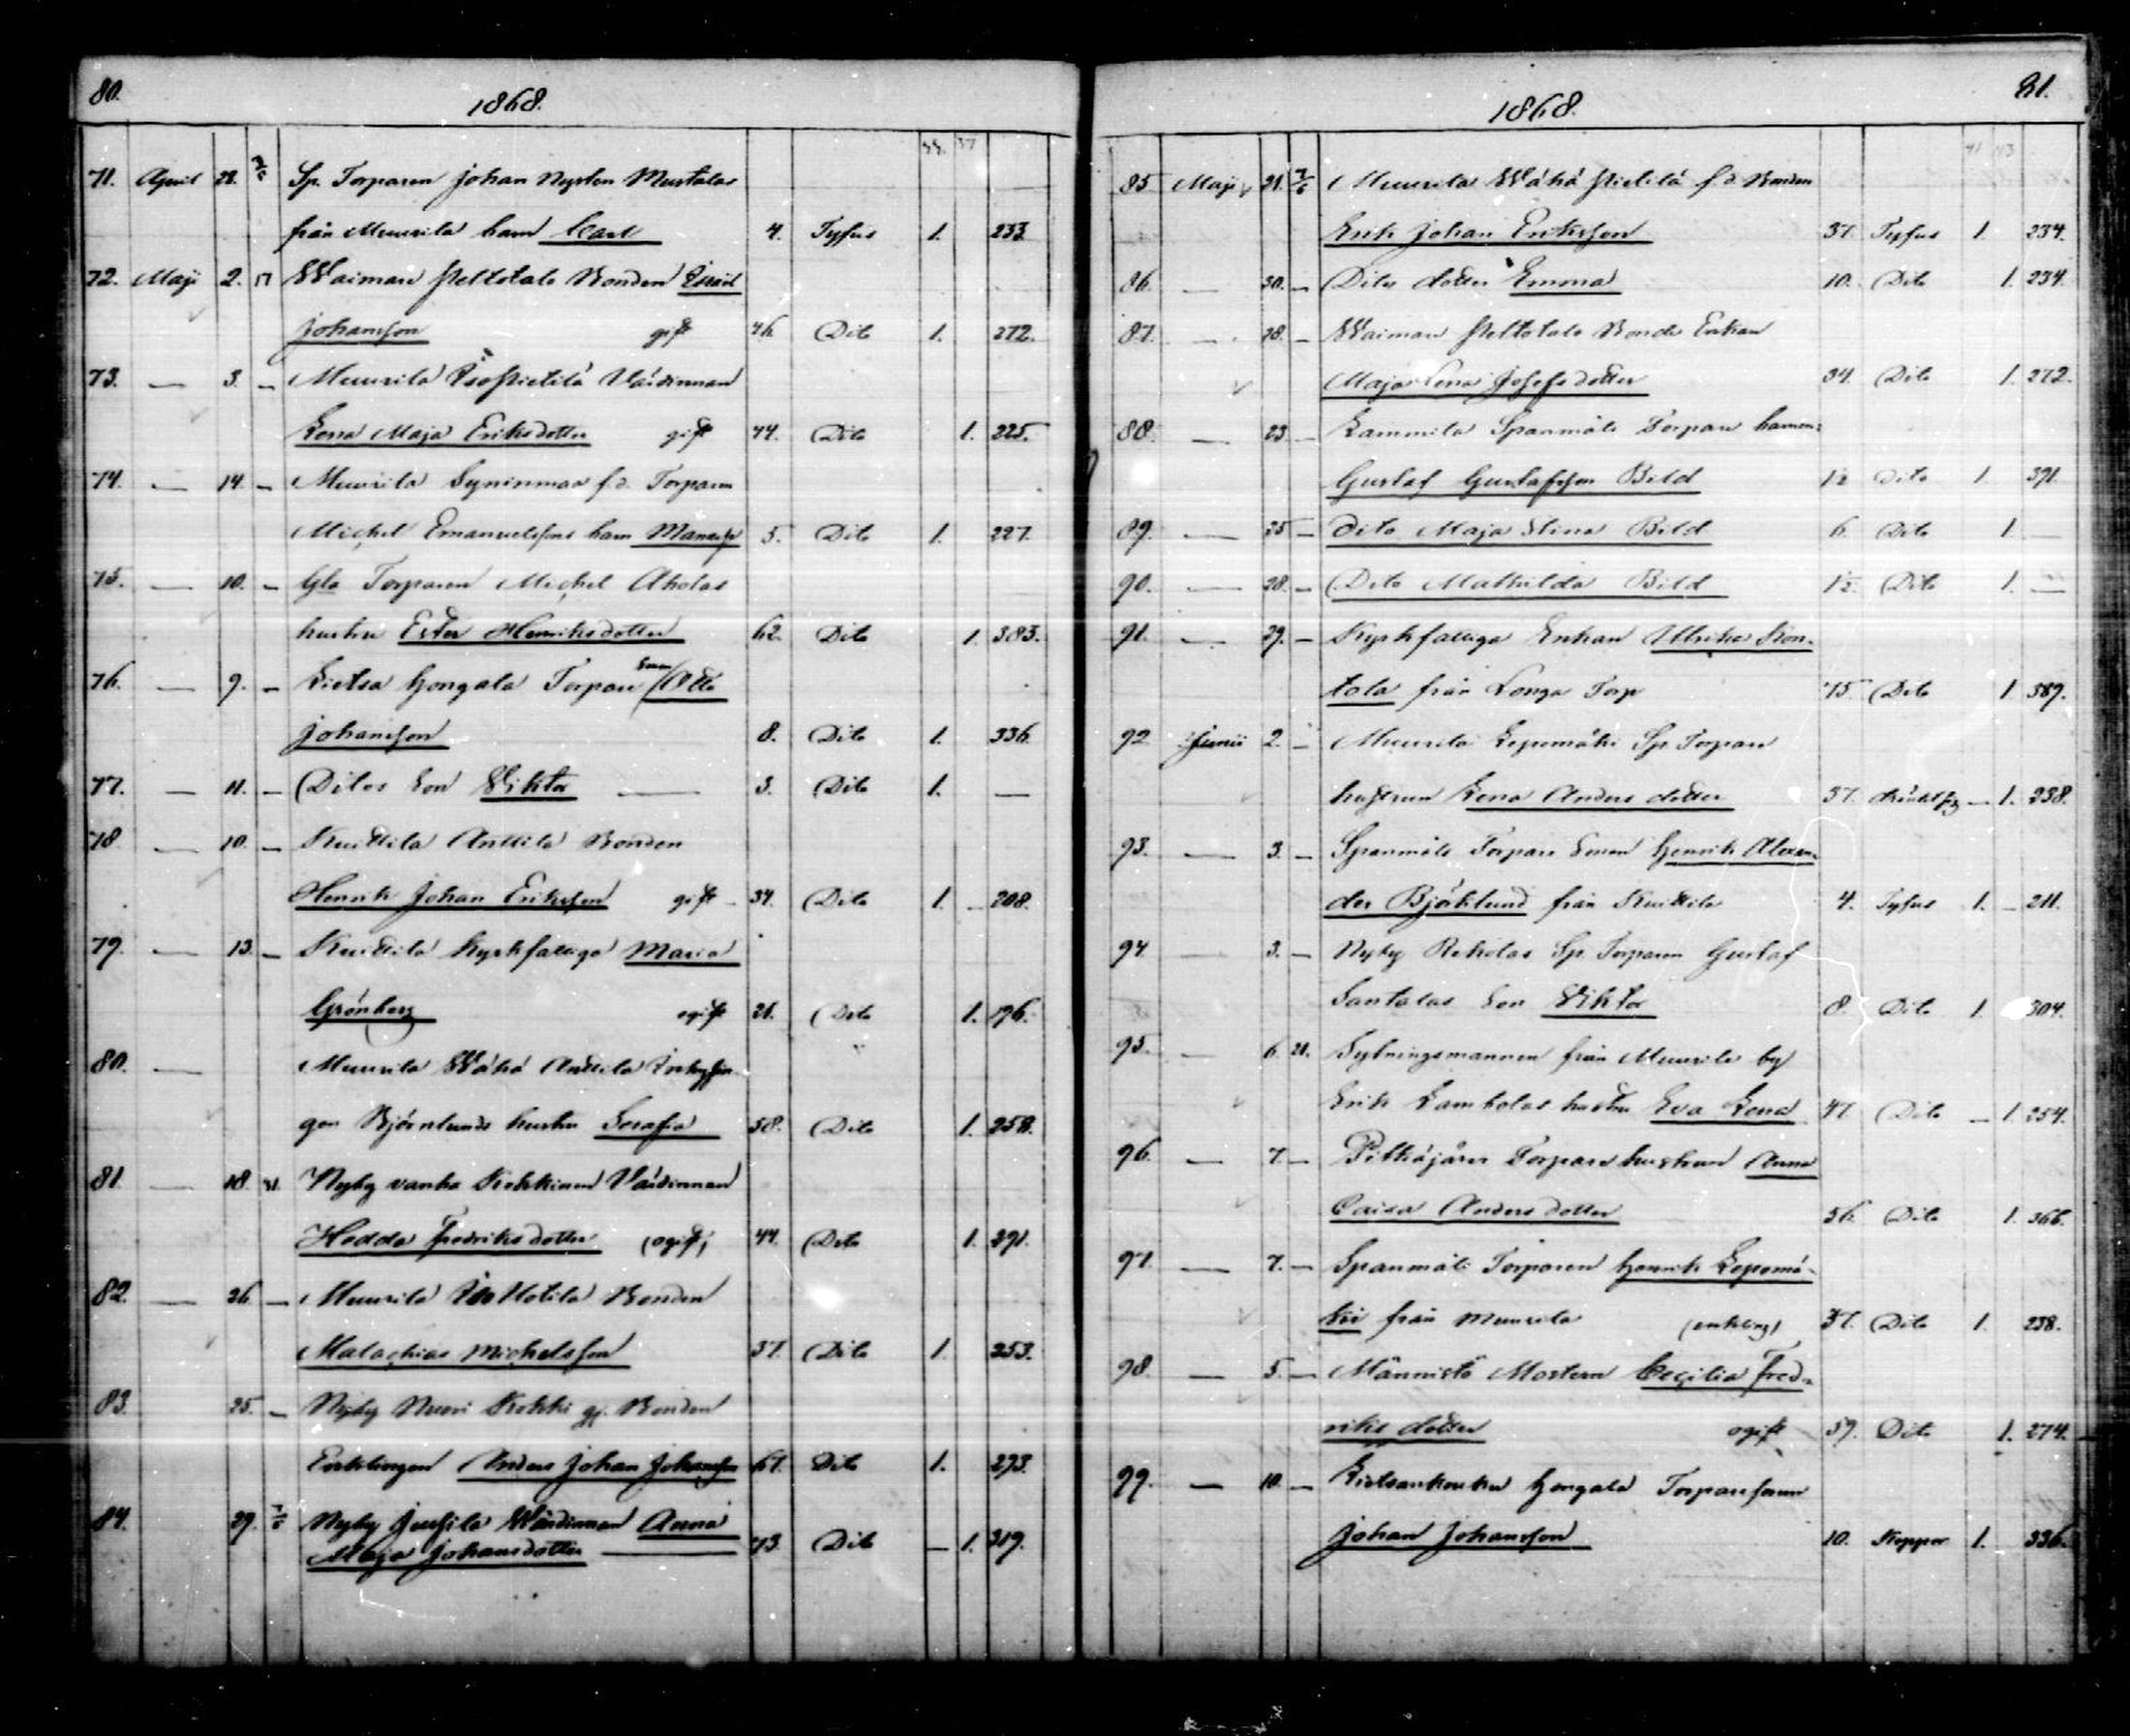 80.
1868.
71. April 28. 3/5 Sp. Torparen Johan Nysten Mustalas
från Muurila barn Carl 4. Tyfus 1. 233.
72. Maji 2. 17 Waiman Peltotalo Bonden Israel
Johansson gift 46. Dito 1. 272.
73. — 3. — Muurila Isopietilä Värdinnan
Lena Maja Eriksdotter gift 44. Dito 1. 225.
74. — 14. — Muurila f.d. Torparen
Michel Emanuelssons barn 5. Dito 1. 227.
75. — 10. — Gla Torparen Michel Aholas
hustru Ester Henriksdotter 62. Dito 1. 383.
76. — 9. — Lietsa Hongala Torpare Sonen Otto
Johansson 8. Dito 1. 336.
77. — 11. — Ditos Son Viktor — 3. Dito 1. —
78. — 10. — Kuittila Anttila Bonden
Henrik Johan Eriksson gift 34. Dito 1. 208.
79. — 13. — Kuittila kyrkfattiga Maria
Grönberg ogift 21. Dito 1. 196.
80. — Muurila Wähä Anttila Inhysin-
gen Björnlunds hustru Serafia 58. Dito 1. 258.
81. — 18. 31. Nyby vanha Krekkinen Värdinnan
Hedda Fredriksdotter (ogift) 44. Dito 1. 291.
82. — 26. — Muurila Bonden
Malachias Michelsson 37. Dito 1. 253.
83. 25. — Nyby Nuori Krekki gl. Bonden
Enklingen Anders Johan Johansson 67. Dito 1. 293.
84. 29. 7/6 Nyby Jussila Wärdinnan Anna
Maja Johansdotter — 73. Dito — 1. 319.
81.
1868.
85 Maji 21. 7/6 Muurila Wähä Pietilä f.d. Bonden
Erik Johan Eriksson 37. Tyfus 1. 234.
86. — 30. — Ditos dotter Emma 10. Dito 1. 234.
87. — 28. — Waiman Peltotalo Bonde Enkan
Maja Lena Josefsdotter 34. Dito 1. 272.
88. — 23 — Lammila Spanmåls Torpare barnen:
Gustaf Gustafsson Bild 1½ Dito 1 391.
89. — 25 — Dito Maja Stina Bild 6. Dito 1. —
90. — 28. — Dito Mathilda Bild 1½. Dito 1. —
91. — 29. — Kyrkfattiga Enkan Ulrika Kon-
tola från Longa Torp 75 Dito 1 389.
92. Junii 2. — Muurila Lepomäki Sp Torpare
hustrun Lena Anders dotter 37. — 1. 238.
93. — 3. — Spanmåls Torpare Sonen Henrik Alexan-
der Björklund från Kuittila 4. Tyfus 1. — 211.
94. — 3. — Nyby Rekolas Sp. Torparen Gustaf
Santalas Son Viktor 8. Dito 1. 304.
95. — 6. 21. från Muurila by
Erik Lamholas hustru Eva Lena 47 Dito — 1. 254.
96. — 7. — Pitkäjärvi Torpare hustrun Anna
Caisa Anders dotter 56. Dito 1. 366.
97. — 7. — Spanmåls Torparen Henrik Lepomä-
ki från Muurila (enkling) 37. Dito 1. 238.
98. — 5. — Männistö Mostern Cecilia Fred-
riks dotter ogift 59. Dito 1. 274.
99. — 10. — Lietsankouku Hongala Torparesonen
Johan Johansson 10. Koppor 1. 336.